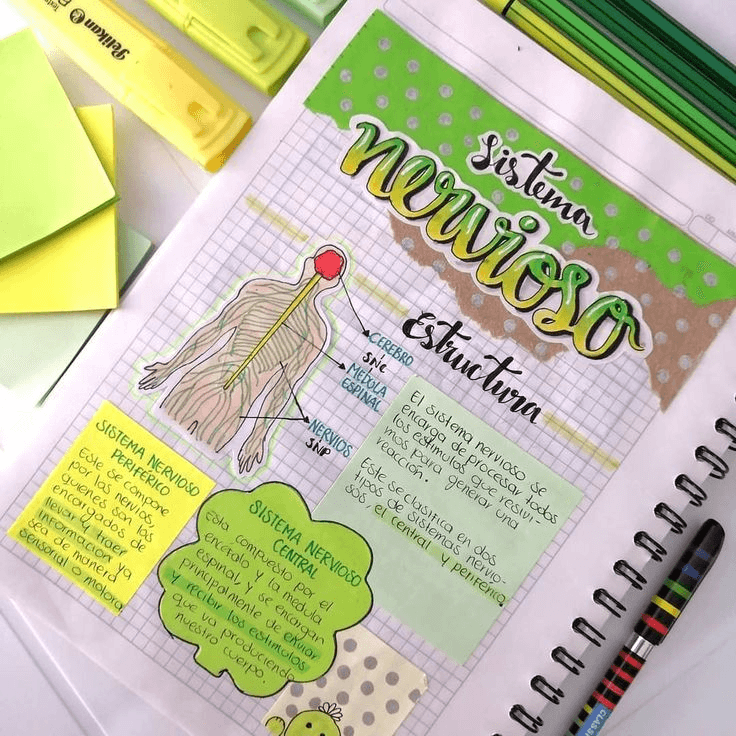 Pelikan
Sistema
nervioso
Estructura
CEREBRO
SNC
MEDULA
ESPINAL
NERVIOS
SNP
El sistema nervioso se
encarga de procesar todos
los estimulos que resivi-
mos para generar una
reacción.
Este se clasifica en dos
tipos de sistemas nervio-
sos, el central y periferico.
SISTEMA NERVIOSO
PERIFERICO
Este se compone
por los nervios,
quienes son los
encargados de
llevar y traer
información ya
sea de manera
sensorial o motora
SISTEMA NERVIOSO
CENTRAL
Esta compuesto por el
encefalo y la medula
espinal y se encargan
principalmente de enviar
y recibir los estimulos
que va produciendo
nuestro cuerpo.
CLASSI